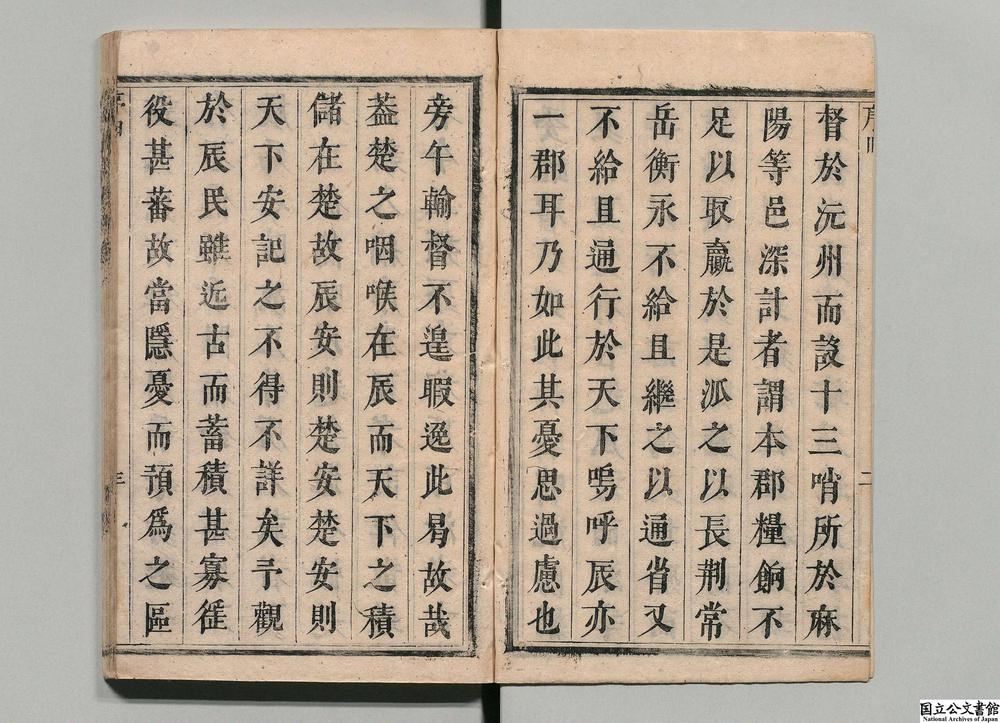 督於沅州而設十三哨所於麻
陽等邑深計者謂本郡糧餉不
足以取贏於是派之以長荆常
岳衡永不給且繼之以通省又
不給且通行於天下嗚呼辰亦
一郡耳乃如此其憂思過慮也
旁午輸督不遑暇逸此曷故哉
葢楚之咽喉在辰而天下之積
儲在楚故辰安則楚安楚安則
天下安記之不得不詳矣予觀
於辰民雖近古而蓄積甚寡徭
役甚蕃故當隱憂而預爲之區
二
三
国立公文書館
National Archives of Japan